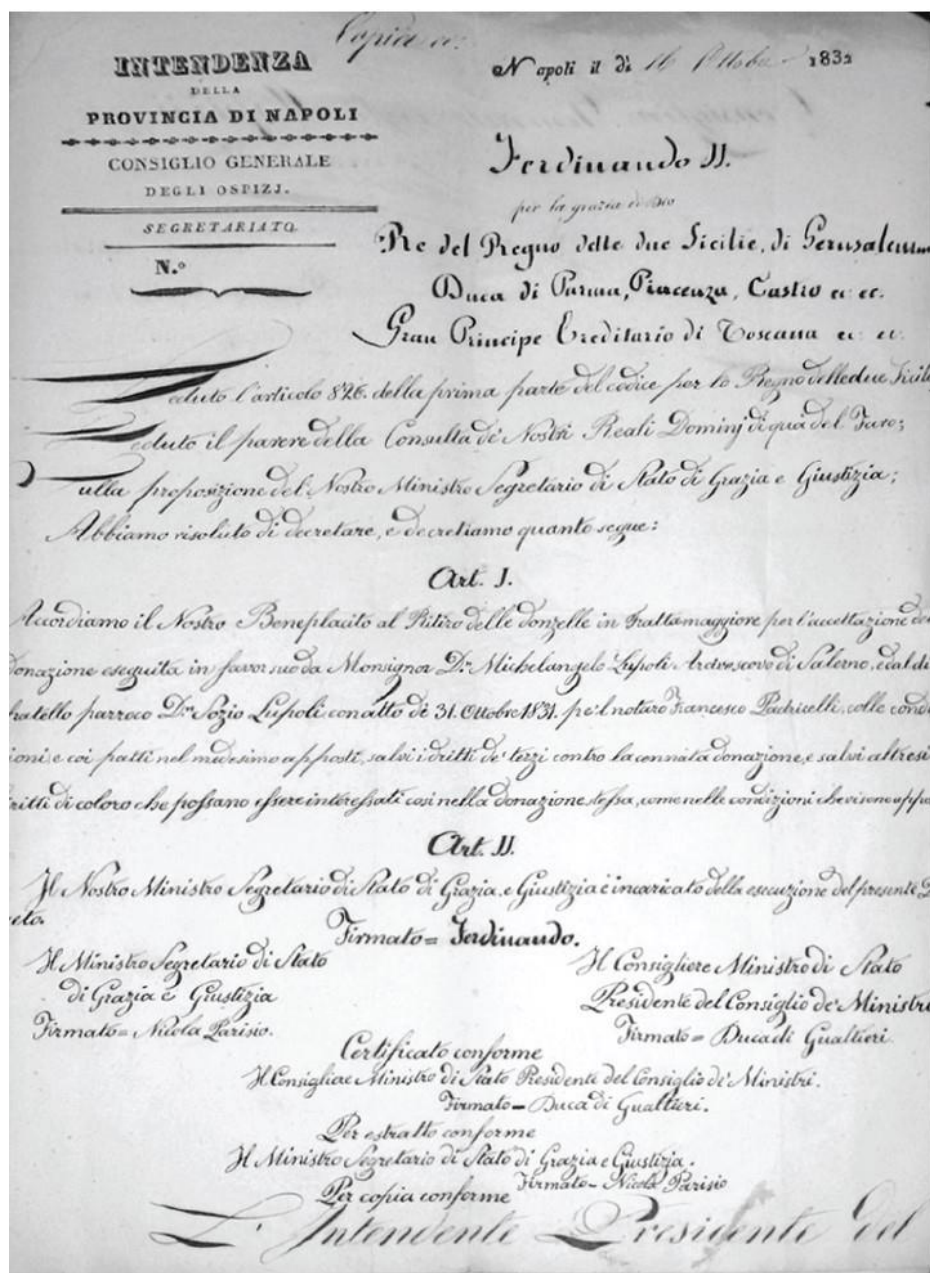 Copia
INTENDENZA
DELLA
PROVINCIA DI NAPOLI
CONSIGLIO GENERALE
DEGLI OSPIZJ.
SEGRETARIATO
N.º
Napoli il dì 16 Ottobre 1832
Ferdinando II.
per la grazia di Dio
Re del Regno delle due Sicilie, di Gerusalemme
Duca di Parma, Piacenza, Castro ec: ec.
Gran Principe Ereditario di Toscana ec: ec.
Veduto l'articolo 826. della prima parte del codice per lo Regno delle due Sicil
Veduto il parere della Consulta de' Nostri Reali Dominj di quà del Faro;
Sulla proposizione del Nostro Ministro Segretario di Stato di Grazia e Giustizia;
Abbiamo risoluto di decretare, e decretiamo quanto segue:
Art. I.
Accordiamo il Nostro Beneplacito al Ritiro delle donzelle in Frattamaggiore per l'accettazione de
donazione eseguita in favor suo da Monsignor D.n Michelangelo Lupoli Arcivescovo di Salerno, e dal di
fratello parroco D.n Sozio Lupoli con atto de' 31. Ottobre 1831. pe'l notaro Francesco Padricelli, colle cond
ioni e coi patti nel medesimo apposti, salvi i dritti de' terzi contro la cennata donazione, e salvi altresì
dritti di coloro che possano essere interessati così nella donazione stessa, come nelle condizioni che vi sono appo
Art. II.
Il Nostro Ministro Segretario di Stato di Grazia, e Giustizia è incaricato della esecuzione del presente D
eto.
Firmato = Ferdinando.
Il Ministro Segretario di Stato
di Grazia e Giustizia
Firmato = Nicola Parisio.
Il Consigliere Ministro di Stato
Presidente del Consiglio de' Ministri
Firmato = Duca di Gualtieri.
Certificato conforme
Il Consigliere Ministro di Stato Presidente del Consiglio de' Ministri.
Firmato = Duca di Gualtieri.
Per estratto conforme
Il Ministro Segretario di Stato di Grazia e Giustizia.
Firmato = Nicola Parisio
Per copia conforme
L'Intendente Presidente del